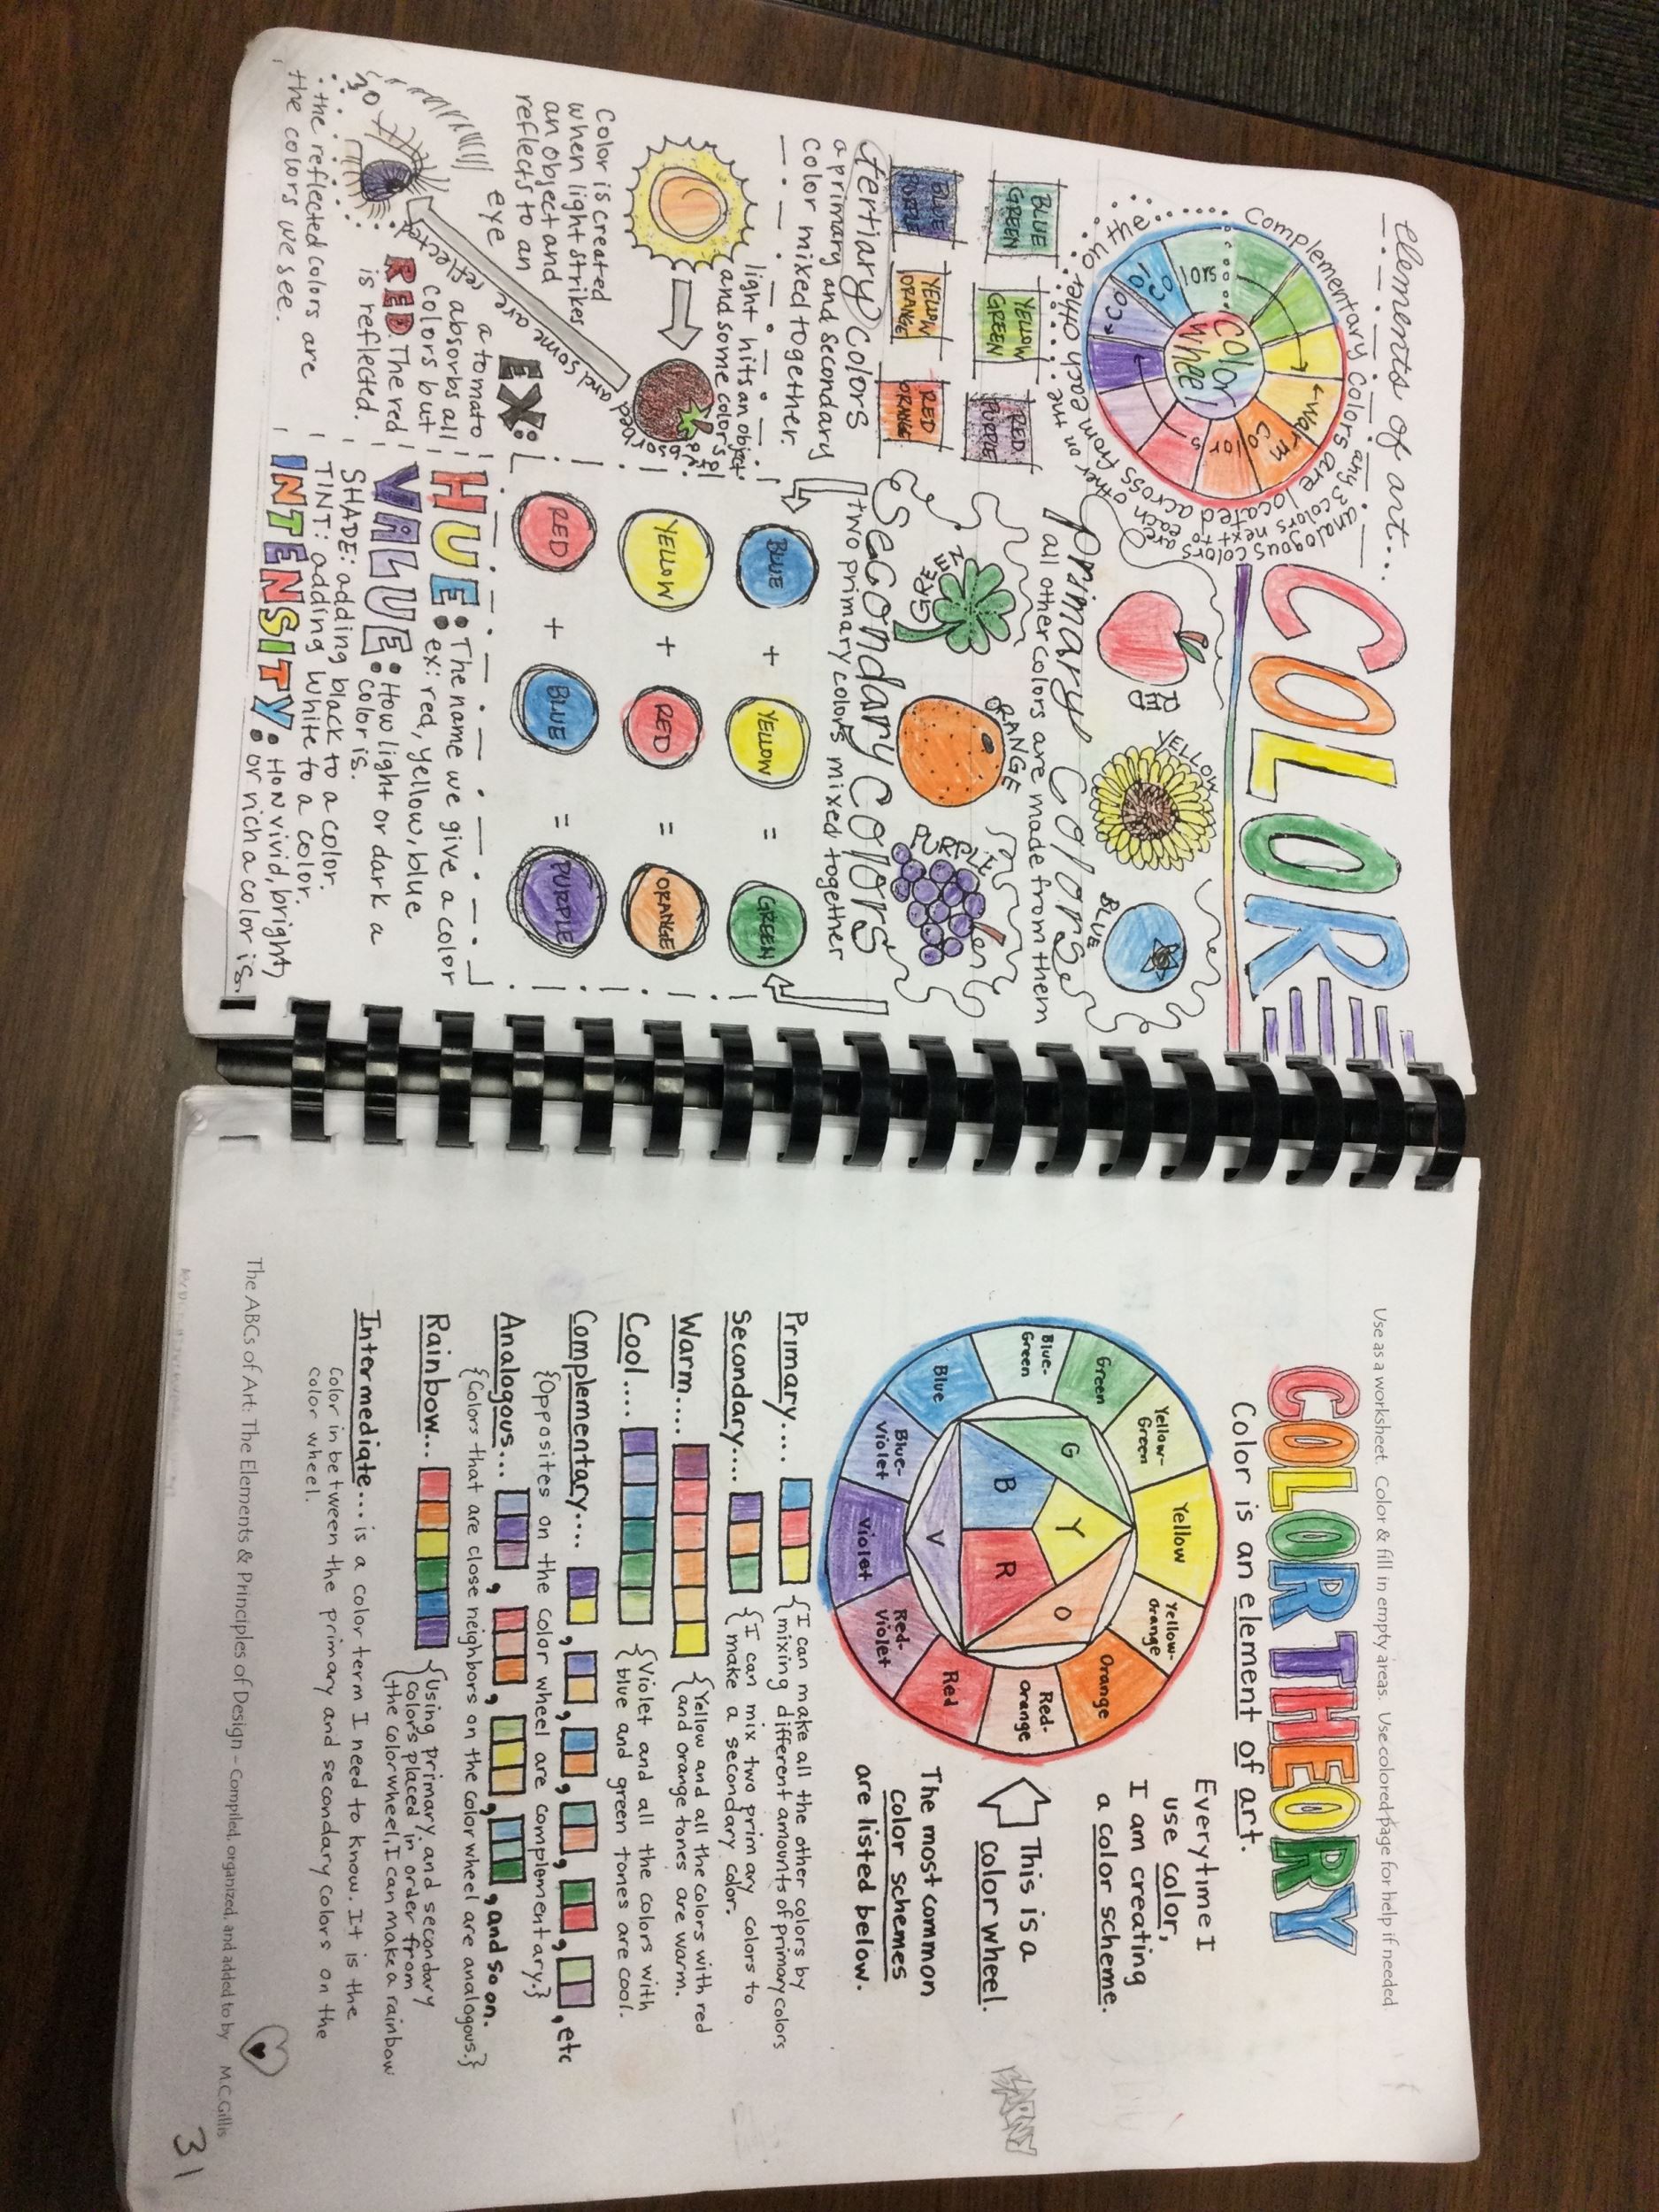 elements of art...
COLOR
Complementary colors are located across from each other on the
color wheel
Warm
colors
cool
colors
analogous colors are
any 3 colors next to
each other on the
RED
YELLOW
BLUE
primary colors
all other colors are made from them
BLUE GREEN
YELLOW GREEN
RED PURPLE
BLUE PURPLE
YELLOW ORANGE
RED ORANGE
GREEN
ORANGE
PURPLE
tertiary colors
a primary and secondary
color mixed together.
secondary colors
two primary colors mixed together
BLUE + YELLOW = GREEN
YELLOW + RED = ORANGE
RED + BLUE = PURPLE
light hits an object
and some color is
absorbed
and some are reflected
Color is created
when light strikes
an object and
reflects to an
eye
EX:
a tomato
absorbs all
colors but
RED. The red
is reflected.
the reflected colors are
the colors we see.
HUE: The name we give a color
ex: red, yellow, blue
VALUE: How light or dark a
color is.
SHADE: adding black to a color.
TINT: adding white to a color.
INTENSITY: How vivid, bright,
or rich a color is.
Use as a worksheet. Color & fill in empty areas. Use colored page for help if needed
COLOR THEORY
Color is an element of art.
Yellow
Yellow-Orange
Orange
Red-Orange
Red
Red-Violet
Violet
Blue-Violet
Blue
Blue-Green
Green
Yellow-Green
G
Y
O
B
R
V
Everytime I
use color,
I am creating
a color scheme.
This is a
color wheel.
The most common
color schemes
are listed below.
Primary.... {I can make all the other colors by
mixing different amounts of primary colors
Secondary.... {I can mix two primary colors to
make a secondary color.
Warm.... {Yellow and all the colors with red
and orange tones are warm.
Cool.... {Violet and all the colors with
blue and green tones are cool.
Complementary.... , , , , , , etc
{Opposites on the color wheel are complementary.}
Analogous... , , , , and so on.
{Colors that are close neighbors on the color wheel are analogous.}
Rainbow... {Using primary and secondary
colors placed in order from
the color wheel, I can make a rainbow
Intermediate... is a color term I need to know. It is the
color in between the primary and secondary colors on the
color wheel.
The ABCs of Art: The Elements & Principles of Design – Compiled, organized, and added to by M.C.Gillis
31